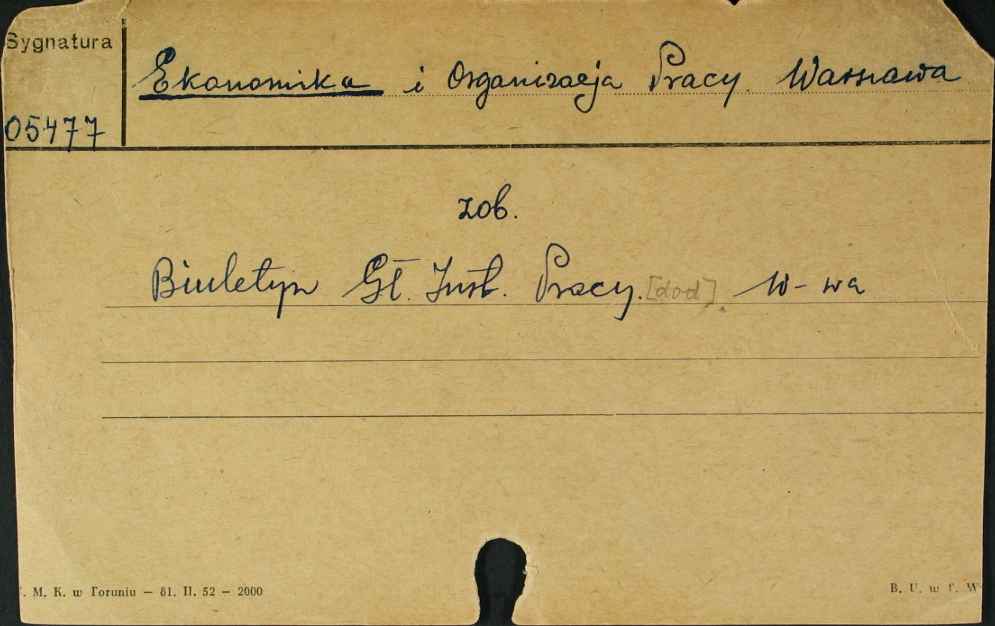 Sygnatura
Ekonomika i Organizacja Pracy. Warszawa
05477
zob.
Biuletyn Gł. Inst. Pracy. [dod] W-wa
M. K. w Toruniu — 81. II. 52 — 2000
B. U. w T. W